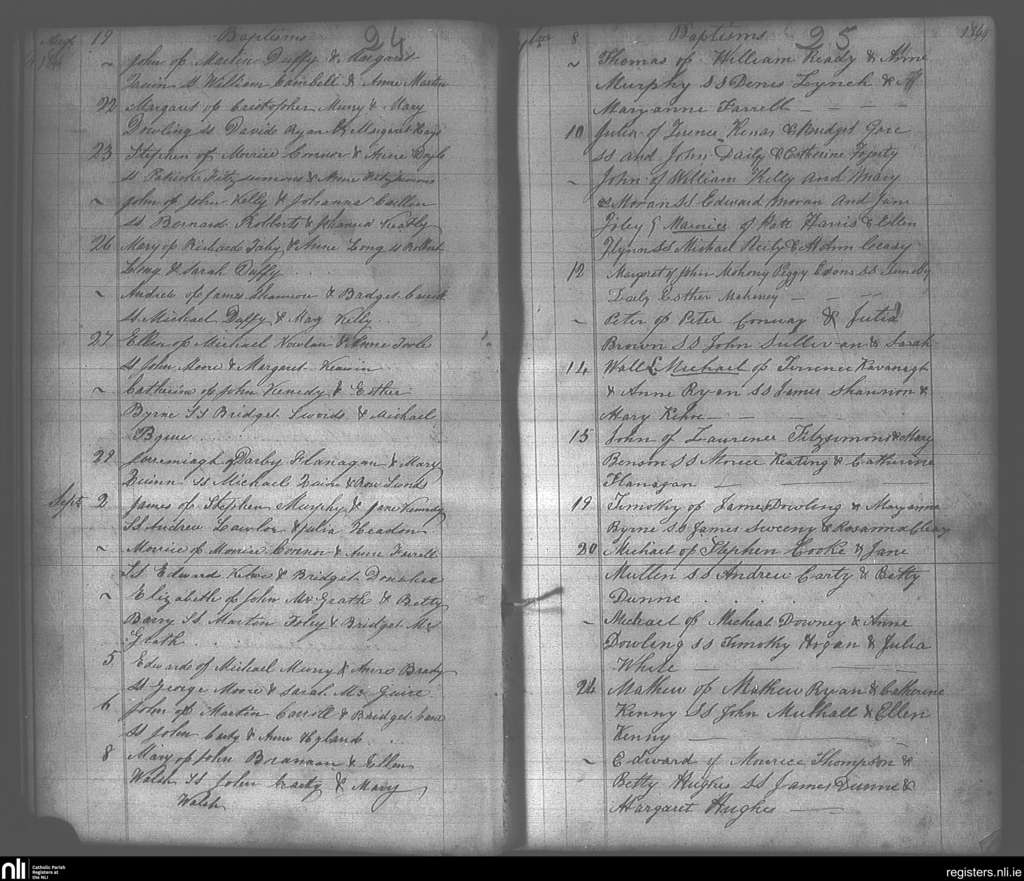 Aug 19 Baptisms 24
~ John of Martin Duffy & Margaret
Ss William Cambell & Anne Martin
22 Margaret of Cristopher Muny & Mary
Dowling Ss David Ryan & Margaret Hays
23 Stephen of Morrice Connor & Anne Doyle
Ss Patrick Fitzsimmons & Anne Fitzsimmons
~ John of John Kelly & Johanna
Ss Bernard Roberts & Johanna
26 Mary of Richard & Anne Long Ss Robert
Long & Sarah Duffy
~ Andrew of James Shannon & Bridget
Ss Michael Duffy & May Kelly
27 Ellen of Michael Nowlan & Anne Toole
Ss John Moore & Margaret
~ Catherine of John Kenedy & Esther
Byrne Ss Bridget Swords & Michael
Byrne
29 of Darby Flanagan & Mary
Quinn Ss Michael &
Sept 2 James of Stephen Murphy & Jane Kennedy
Ss Andrew Lawlor & Julia Headon
~ Morrice of Morrice Connor & Anne
Ss Edward & Bridget Donahee
~ Elizabeth of John Mc Grath & Betty
Barry Ss Martin Foley & Bridget Mc
Grath
5 Edward of Michael Muny & Anne
Ss George Moore & Sarah Mc Guire
6 John of Martin Carroll & Bridget
Ss John & Anne Hyland
8 Mary of John Boranan & Ellen
Walsh Ss John & Mary
Walsh
8 Baptisms 25 1864
~ Thomas of William Ready & Anne
Murphy SS Denis Lynch &
Maryanne Farrell
10 Julia of & Bridget Gore
SS and John Daily & Catherine Fogerty
~ John of William Kelly and Mary
Moran SS Edward Moran and Jane
Foley Maurice of Patt Harris & Ellen
Flynn SS Michael Reily &
12 Margaret of John Mahony Peggy SS
Daily Esther Mahoney
~ Peter of Peter Conway & Julia
Brown SS John Sullivan & Sarah
14 Wall Michael of Terrence Kavanagh
& Anne Ryan SS James Shannon &
Mary Kehoe
15 John of Laurence Fitzsimons & Mary
Benson SS Morice Keating & Catherine
Flanagan
19 Timothy of James Dowling & Maryanne
Byrne SS James Sweeny & Rosanna Cleary
20 Michael of Stephen Cooke & Jane
Mullen SS Andrew Carty & Betty
Dunne
~ Michael of Micheal Downey & Anne
Dowling SS Timothy Hogan & Julia
White
24 Mathew of Mathew Ryan & Catherine
Kenny SS John Mulhall & Ellen
Kenny
~ Edward of Mourice Thompson &
Betty Hughes SS James Dunne &
Margaret Hughes
nli Catholic Parish
Registers at
the NLI
registers.nli.ie